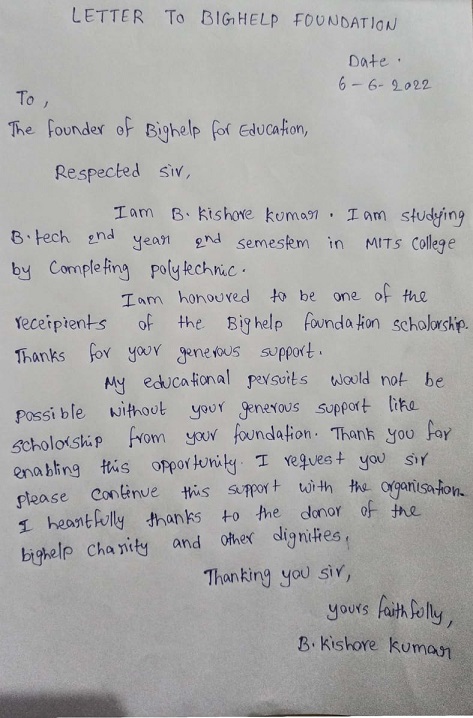 LETTER TO BIGHELP FOUNDATION
Date.
6-6-2022
To,
The founder of Bighelp for Education,
Respected sir,
I am B. Kishore Kumar. I am studying
B.tech 2nd year 2nd semestem in MITS College
by Completing polytechnic.
I am honoured to be one of the
receipients of the Bighelp foundation scholorship.
Thanks for your generous support.
My educational persuits would not be
possible without your generous support like
scholorship from your foundation. Thank you for
enabling this opportunity. I request you sir
please continue this support with the organisation.
I heartfully thanks to the donor of the
bighelp charity and other dignities.
Thanking you sir,
yours faithfully,
B. Kishore Kumar